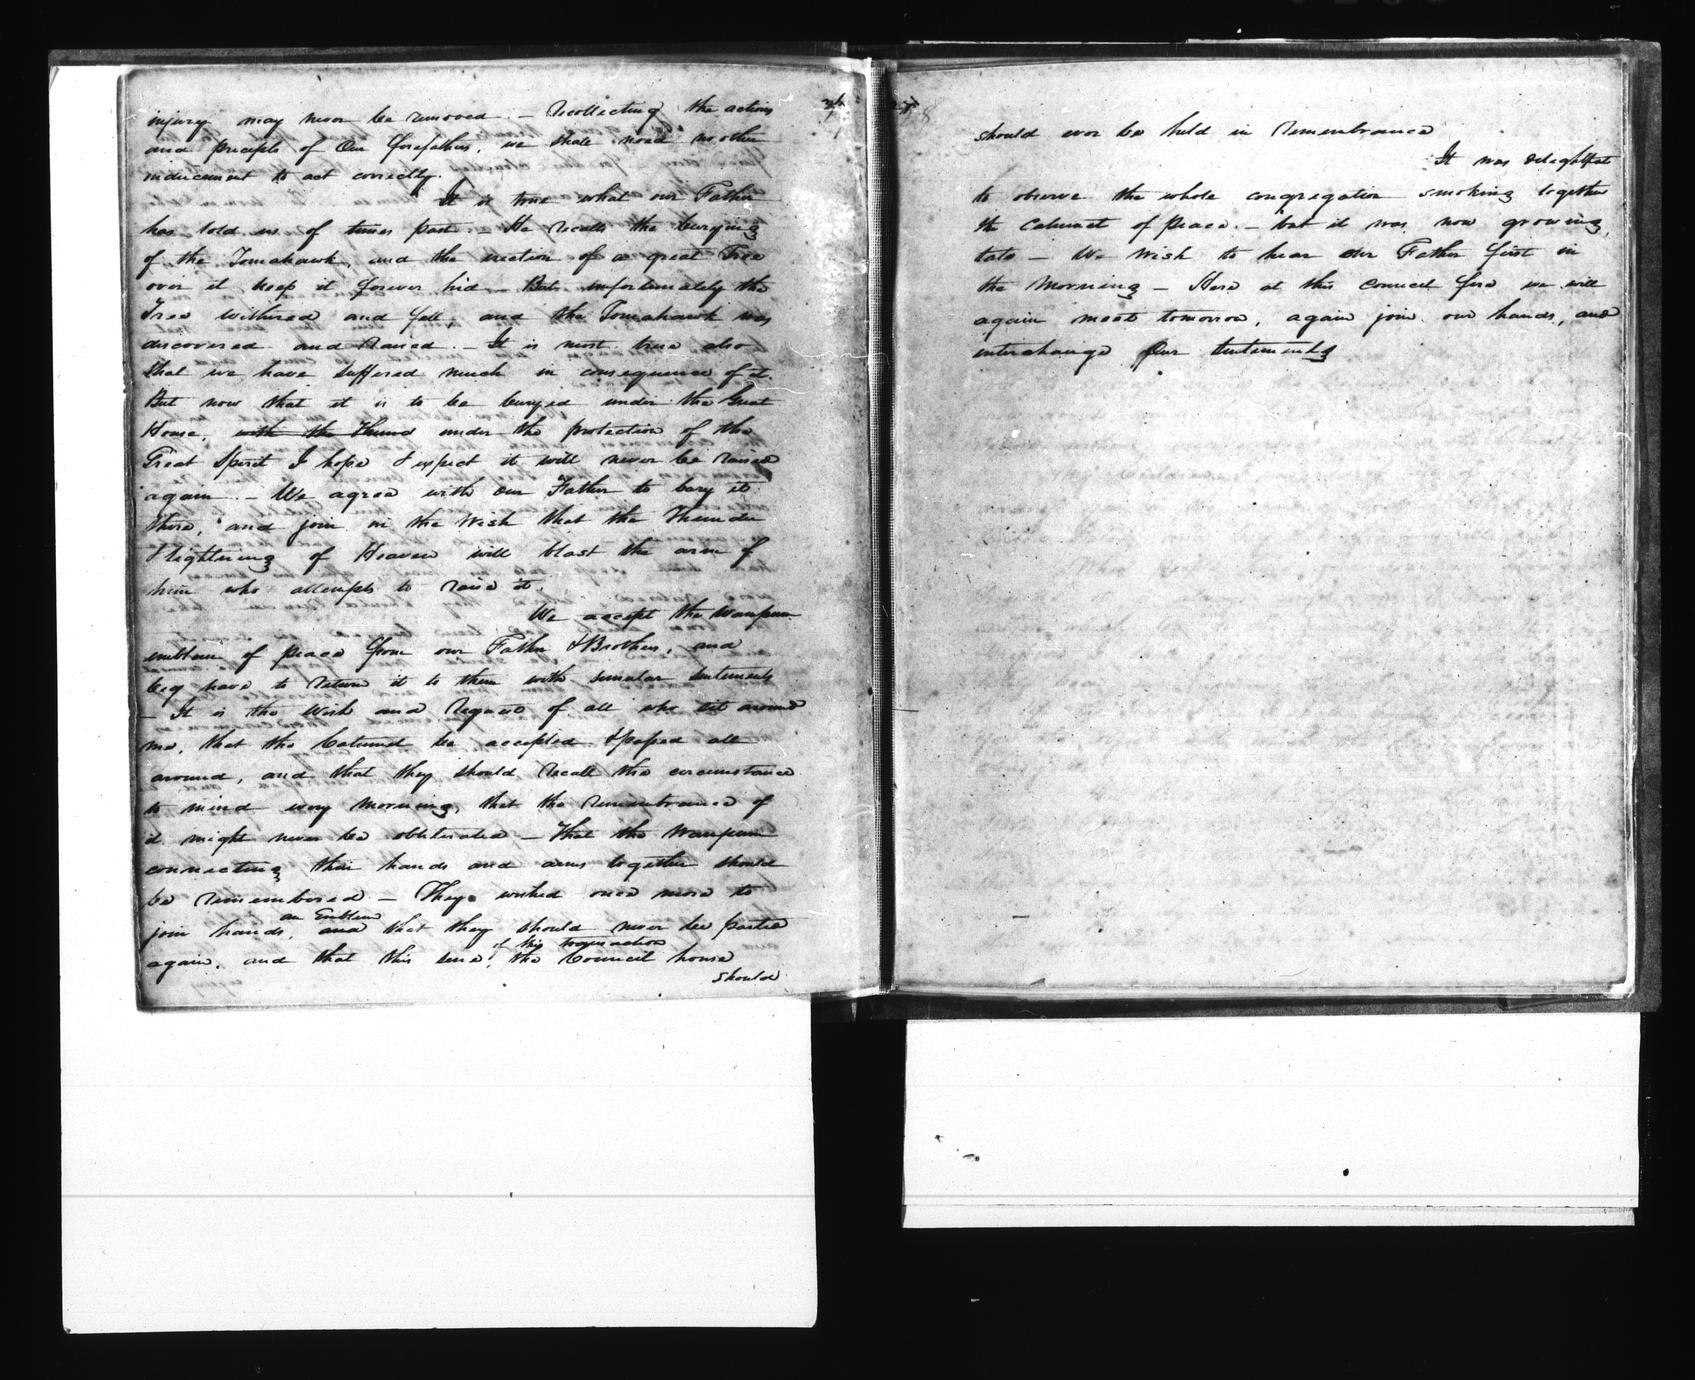 injury may never be removed. — Recollecting the actions
and precepts of Our forefathers, we shall need no other
inducement to act correctly.
It is true what our Father
has told us of times past. — He recalls the burying
of the Tomahawk, and the erection of a great Tree
over it keep it forever hid — But unfortunately the
Tree withered and fell and the Tomahawk was
discovered and Raised. — It is most true also
that we have suffered much in consequence of it.
But now that it is to be buryed under the Great
House, with the Thund under the protection of the
Great Spirit I hope & expect it will never be raised
again. — We agree with our Father to bury it
there, and join in the Wish that the Thunder
& lightning of Heaven will blast the arm of
him who attempts to raise it.
We accept the Wampum
emblem of peace from our Father & Brothers, and
beg leave to return it to them with similar sentements
— It is the Wish and request of all who sit around
me, that the Calumet be accepted & passed all
around, and that they should recall the circumstance
to mind every morning, that the remembrance of
it might never be obliterated — That the Wampum
connecting their hands and arms together should
be remembered — They wished once more to
join hands, an Emblem and that they should never be parted
again, and that this scene, of this transaction the Council house
should
should ever be held in remembrance
It was delightful
to observe the whole congregation smoking together
the Calumet of peace. — but it was now growing
late — We Wish to hear our Father first in
the Morning — Here at this Council fire we will
again meet tomorrow, again join our hands, and
interchange Our Sentements